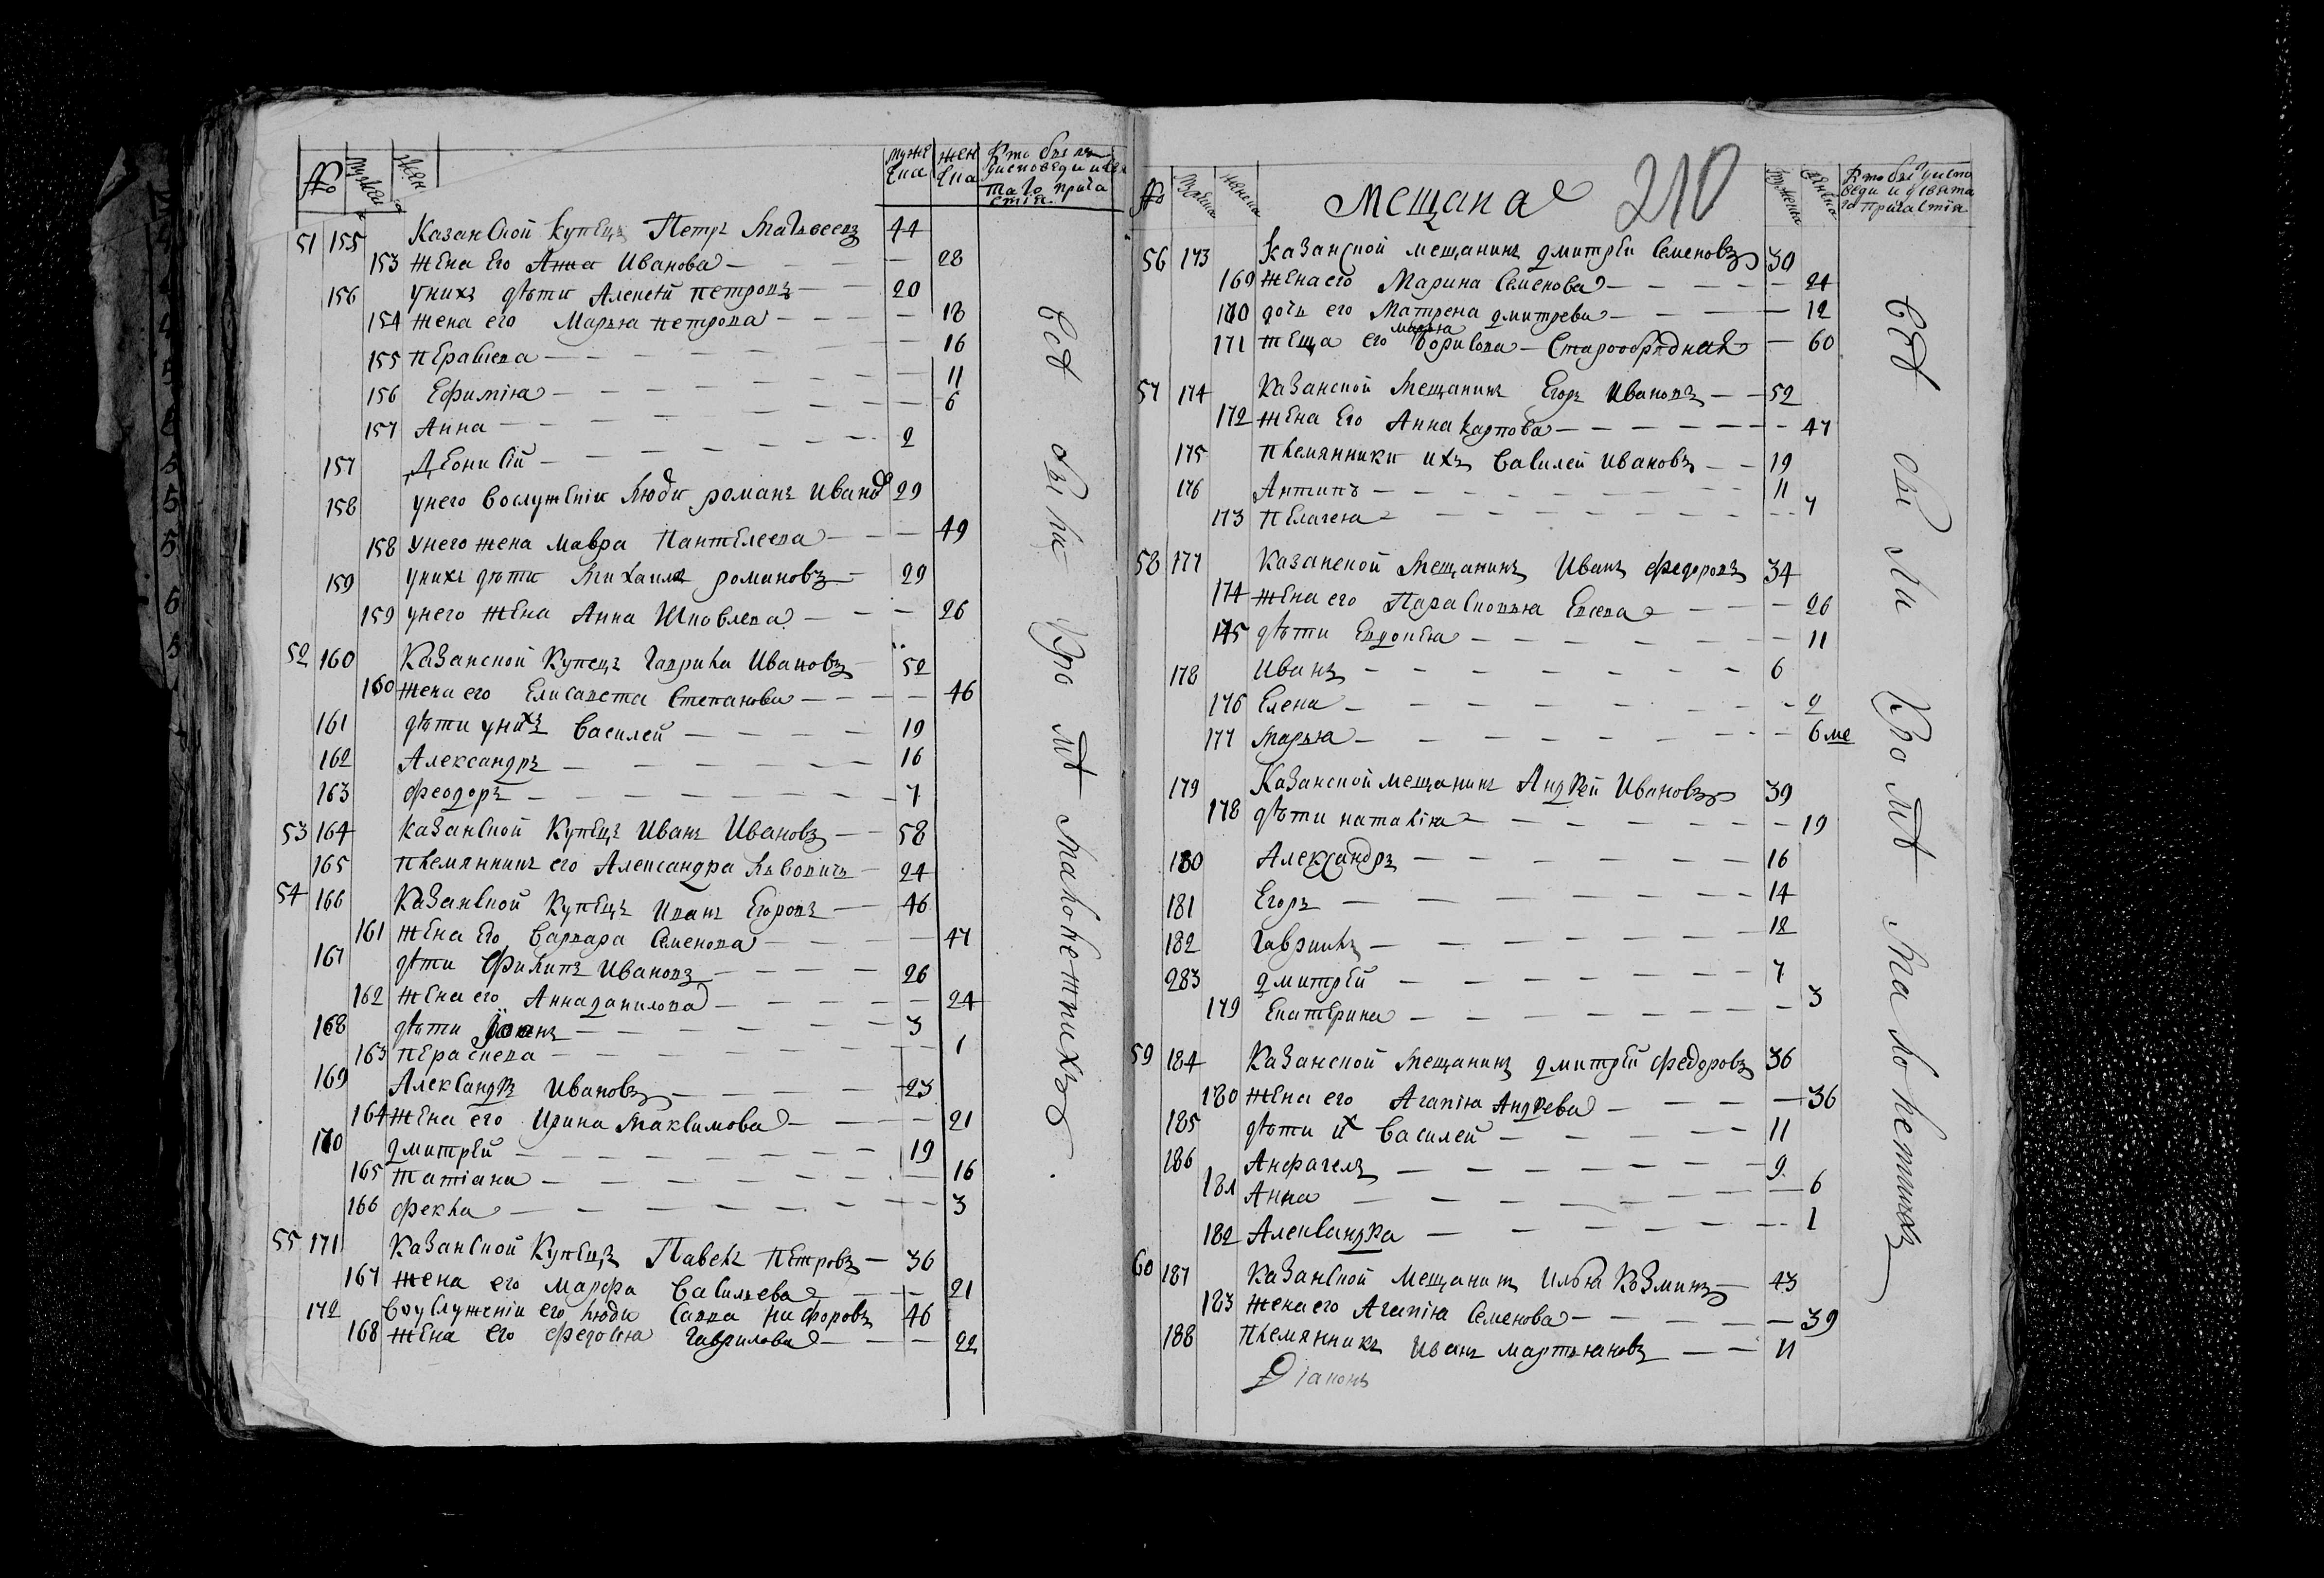 № Мужеска Женска Мужеска Женска Кто был на исповеди и свята го прича стія
51 155 Казанской Купецъ Петръ Матвеевъ 44
153 Жена Его Анна Иванова 28
156 у нихъ дѣти Алексей петровъ 20
154 жена его Марья петрова 18
155 перасцева 16
156 Ефимія 11
157 Анна 6
157 Деонисій 2
158 у него вослуженіи люди романъ Иванов 29
158 у него жена мавра Пантелеева 49
159 у нихъ дѣти Михаилъ романовъ 29
159 у него жена Анна Яковлева 26
52 160 Казанской Купецъ Гаврила Ивановъ 52
160 жена его Елисавета Степанова 46
161 дѣти у нихъ Василей 19
162 Александръ 16
163 Феодоръ 7
53 164 казанской Купецъ Иванъ Ивановъ 58
165 племянникъ его Александра Львовичъ 24
54 166 Казанской Купецъ Иванъ Егоровъ 46
161 жена Его Варвара Семенова 47
167 дѣти Филипъ Ивановъ 26
162 жена его Анна данилова 24
168 дѣти Іоанъ 3
163 пераскева 1
169 Александръ Ивановъ 23
164 жена его Ирина Максимова 21
170 дмитрей 19
165 татіана 16
166 фекла 3
55 171 Казанской Купецъ Павелъ петровъ 36
167 жена его марфа Васильева 21
172 Воуслуженіи его люди Савва Никифоровъ 46
168 жена его федосья гаврилова 22
Всѣ были Кромѣ Малолетнихъ.
Мещана 210
№ Мужеска женска мужеска женска Кто был у испо веди и у святa го причастія
56 173 казанской мещанинъ дмитрей Семеновъ 30
169 жена его Марина Семенова 24
170 дочь его Матрена дмитрева 12
марья
171 теща его Борисова Старообрядная 60
57 174 Казанской Мещанинъ Егоръ Ивановъ 52
172 жена Его Анна карпова 47
175 племянники ихъ Василей Ивановъ 19
176 Антипъ 11
173 пелагея 7
58 177 Казанской Мещанинъ Иванъ федоровъ 34
174 жена его Парасковья Евсева 26
175 дѣти Евдокея 11
178 Иванъ 6
176 Елена 2
177 Марья 6 ме
179 Казанской мещанинъ Андрей Ивановъ 39
178 дѣти наталія 19
180 Александръ 16
181 Егоръ 14
182 Гаврилъ 12
283 дмитрей 7
179 Екатерина 3
59 184 Казанской Мещанинъ дмитрей федоровъ 36
180 жена его Агапія Андрева 36
185 дѣти их Василей 11
186 Анфагелъ 9
181 Анна 6
182 Александра 1
60 187 Казанской Мещанинъ Илья Козминъ 43
183 жена его Агапія Семенова 39
188 племянникъ Иванъ мартьяновъ 11
Діаконъ
Всѣ были Кромѣ Малолетнихъ